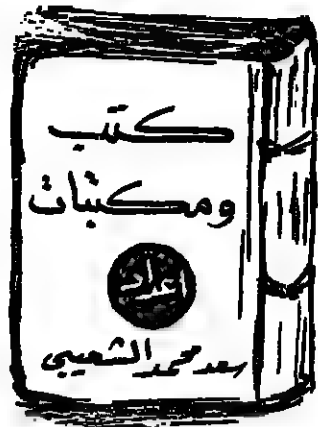 كتب
ومكتبات
إعداد
سعد محمد الشعيبي